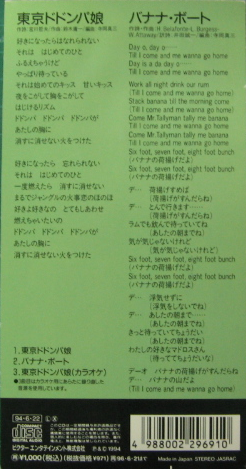 東京ドドンパ娘
好きになったらはなれられない
それは はじめてのひと
ふるえちゃうけど
やっぱり待っている
それは始めてのキッス 甘いキッス
夜をこがして胸をこがして
はじけるリズム
ドドンパ ドドンパ
ドドンパが
あたしの胸に
消すに消せない火をつけた
好きになったら 忘れられない
それは はじめてのひと
一度燃えたら 消すに消せない
まるでジャングルの火事恋のほのほ
好きよ好きなの とてもしあわせ
燃えちゃいたいの
ドドンパ ドドンパ
ドドンパが
あたしの胸に
消すに消せない火をつけた
1.東京ドドンパ娘
2.バナナ・ボート
3.東京ドドンパ娘(カラオケ)
バナナ・ボート
Day o, day o……
Till I come and me wanna go home
Day is a de day o……
Till I come and me wanna go home
Work all night drink our ram
(Till I come and me wanna go home)
Stack banana til the morning come
(Till I come and me wanna go home)
Come Mr.Tallyman tally me banana
Till I come and me wanna go home
Come Mr.Tallyman tally me banana
Till I come and me wanna go home
Six foot, seven foot, eight foot bunch
(バナナの荷揚げだよ)
Six foot, seven foot, eight foot bunch
(バナナの荷揚げだよ)
デー 荷揚げすめば
(荷揚げがすんだらね)
デー とんで行きます……
(荷揚げがすんだらね)
ラムでも飲んで待っていてネ
(あしたの朝までね)
気が気じゃないけれど
(気が気じゃないけれど)
Six foot, seven foot, eight foot bunch
(バナナの荷揚げだよ)
Six foot, seven foot, eight foot bunch
(バナナの荷揚げだよ)
デー 浮気せずに
(浮気をしないでね)
デー あしたの朝まで……
(あしたの朝までね)
きっと待っていてちょうだい
(あしたの朝までね)
わたしの好きなマドロスさん
(待っててちょうだいな)
デーオ バナナの荷揚げがすんだらね
デー バナナの山だよ
(Till I come and me wanna go home)
94-6-22
COMPACT disc DIGITAL AUDIO
ビクターエンタテインメント株式会社 Ⓟ&Ⓒ 1994
Made in Japan STEREO JASRAC
¥1,000(税込)(税抜価格¥971) ('96・6・21まで)
4 988002 296910